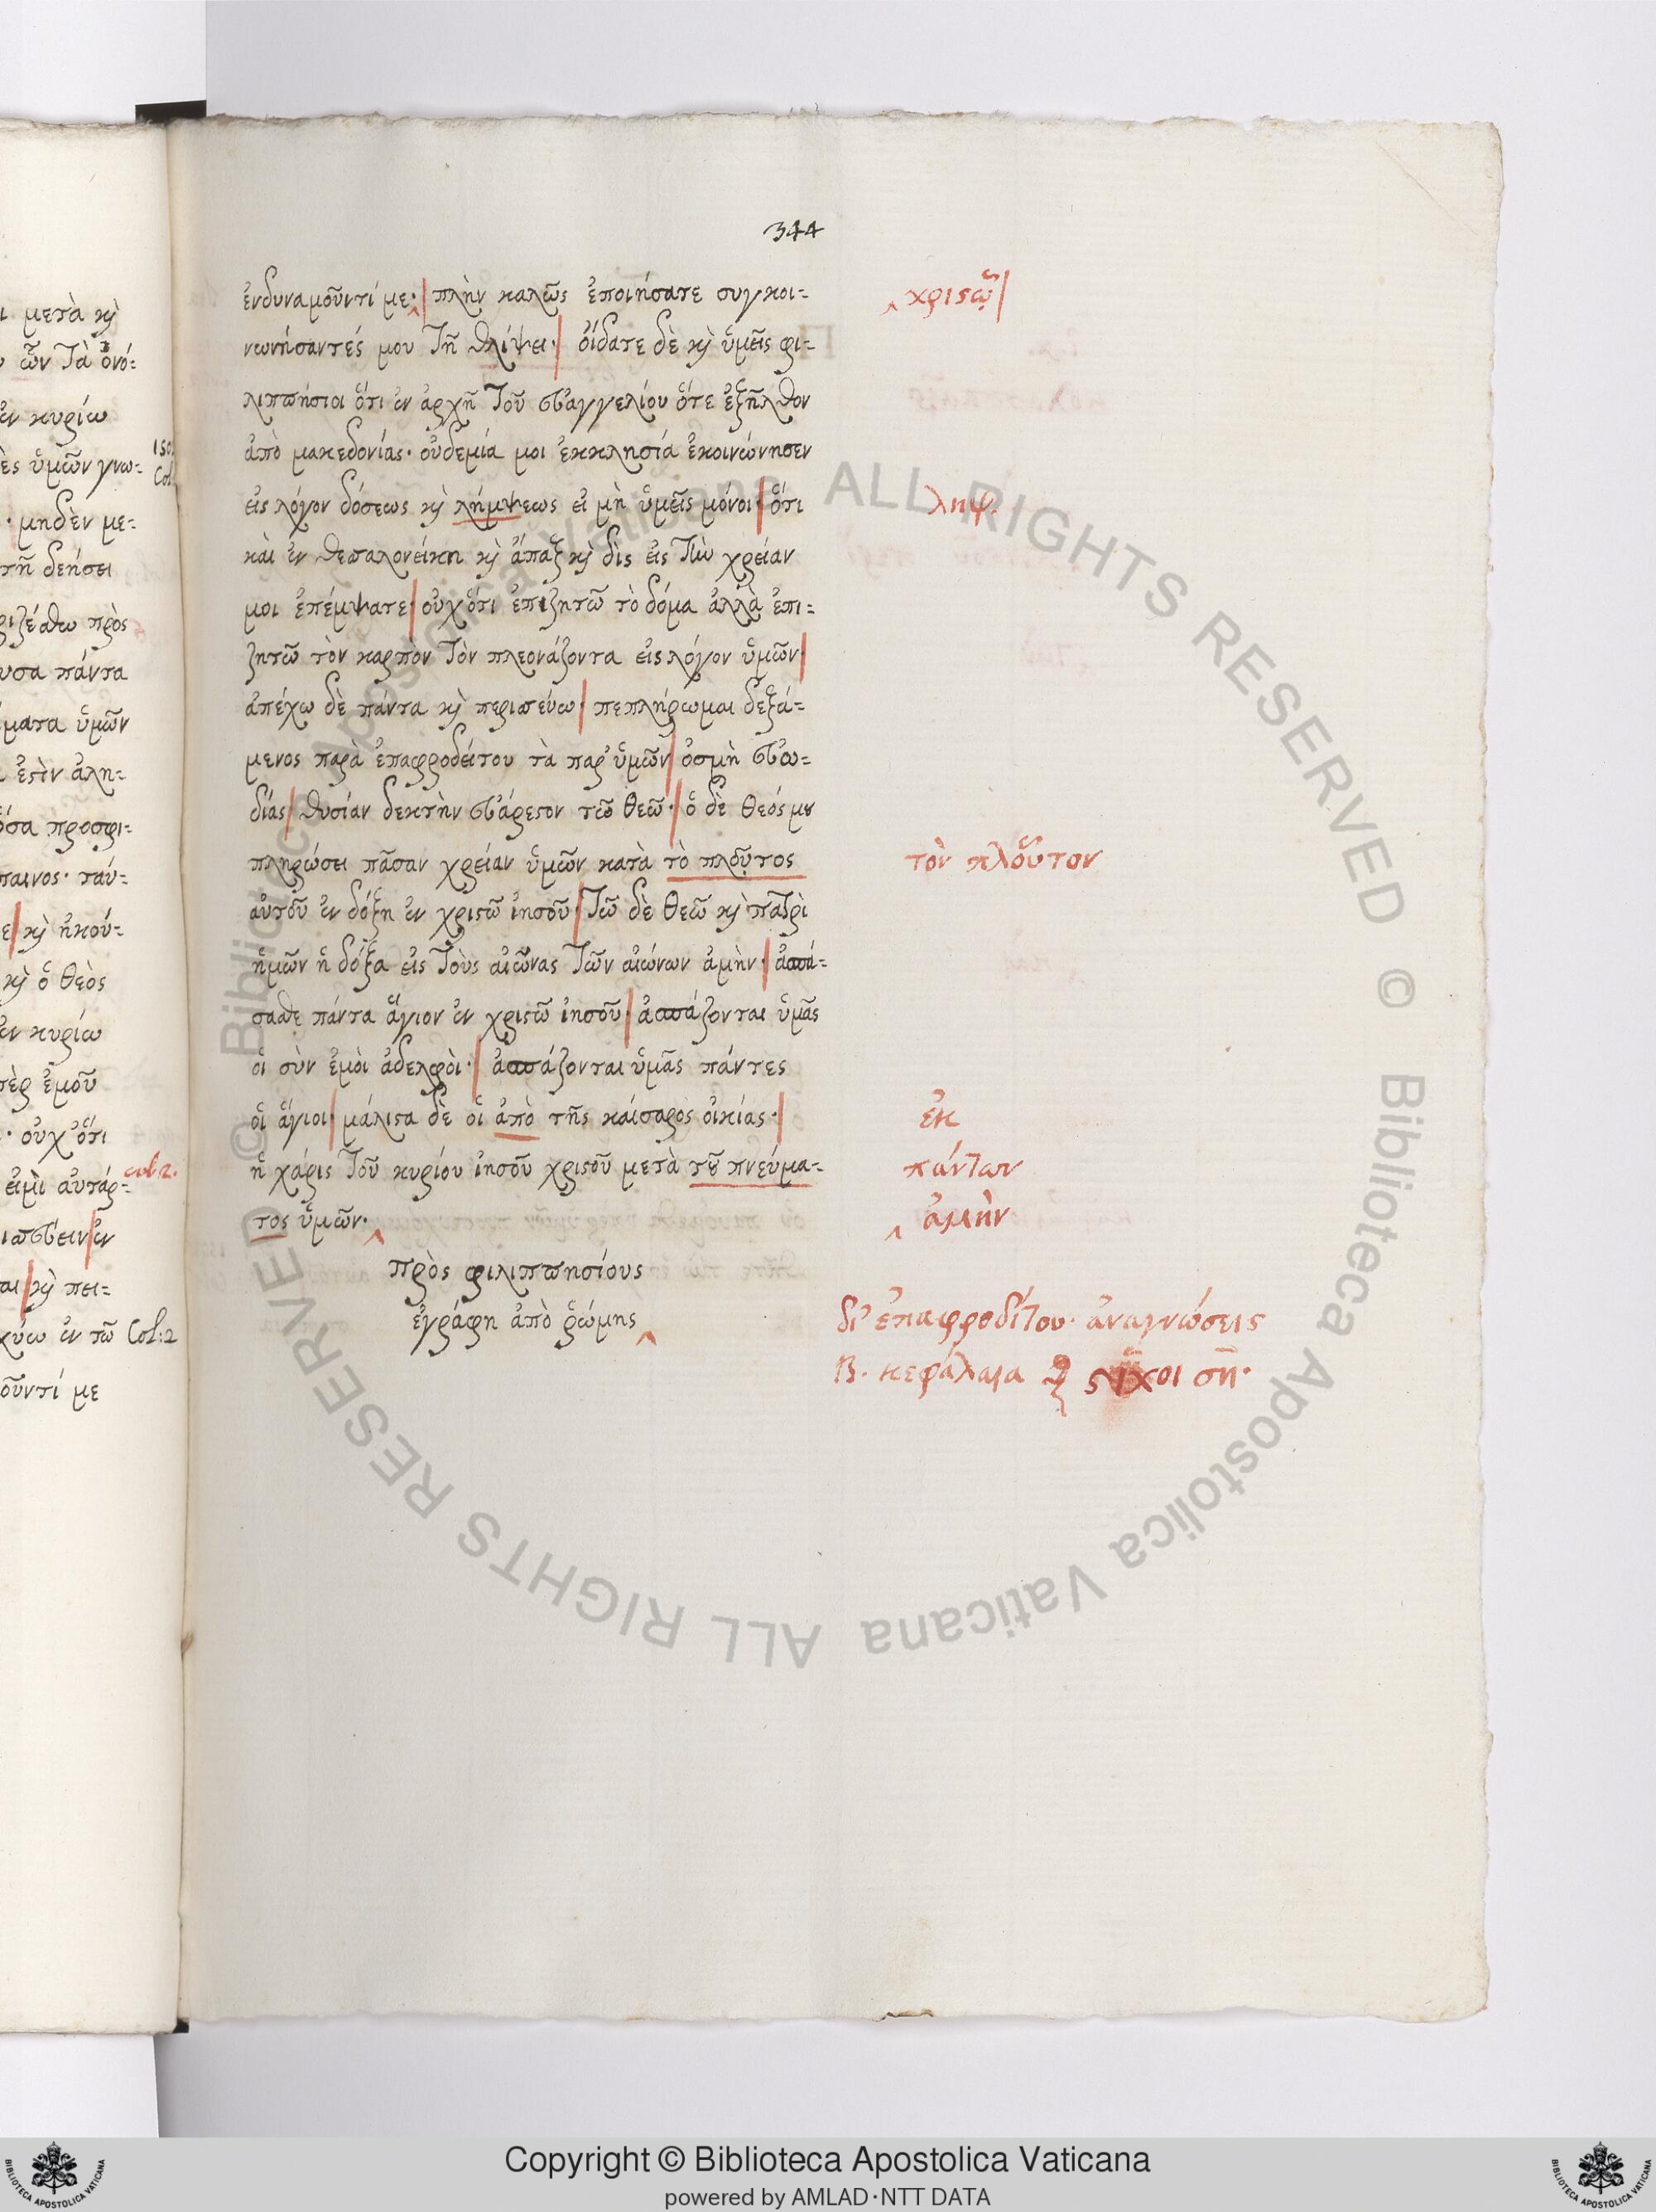 344
ἐνδυναμοῦντί με· | πλὴν καλῶς ἐποιήσατε συγκοι=
‸ χριστῷ |
νωνήσαντές μου τῇ θλίψει· | ὀίδατε δὲ κὶ ὑμεῖς φι=
λιππήσιοι ὅτι ἐν ἀρχῇ τοῦ ἐυαγγελίου ὅτε ἐξῆλθον
ἀπὸ μακεδονίας· οὐδεμία μοι ἐκκλησία ἐκοινώνησεν
εἰς λόγον δόσεως κὶ λήμψεως εἰ μὴ ὑμεῖς μόνοι· | ὅτι
ληψ.
καὶ ἐν θεσαλονείκη κὶ ἅπαξ κὶ δὶς εἰς τὴν χρείαν
μοι ἐπέμψατε | οὐχ ὅτι ἐπιζητῶ τὸ δόμα ἀλλὰ ἐπι=
ζητῶ τὸν καρπὸν τὸν πλεονάζοντα εἰς λόγον ὑμῶν· |
ἀπέχω δὲ πάντα κὶ περισσεύω· | πεπλήρωμαι δεξά=
μενος παρὰ ἐπαφροδείτου τὰ παρ' ὑμῶν | ὀσμὴ ἐυω=
δίας | θυσίαν δεκτὴν ἐυάρεστον τῶ θεῶ· | ὁ δὲ θεός μου
πληρώσει πᾶσαν χρείαν ὑμῶν κατὰ τὸ πλοῦτος
τὸν πλοῦτον
αὐτοῦ ἐν δόξη ἐν χριστῶ ἰησοῦ· | τῶ δὲ θεῶ κὶ πατρὶ
ἡμῶν ἡ δόξα εἰς τοὺς αἰῶνας τῶν αἰώνων ἀμὴν· | ἀσπά=
σασθε πάντα ἅγιον ἐν χριστῶ ἰησοῦ· | ἀσπάζονται ὑμᾶς
οἱ σὺν ἐμοὶ ἀδελφοὶ· | ἀσπάζονται ὑμᾶς πάντες
οἱ ἅγιοι· | μάλιστα δὲ οἱ ἀπὸ τῆς καίσαρος οἰκίας· |
ἐκ
ἡ χάρις τοῦ κυρίου ἰησοῦ χριστοῦ μετὰ τοῦ πνεύμα=
πάντων
τος ὑμῶν· ‸
‸ ἀμὴν
πρὸς φιλιππησίους
ἐγράφη ἀπὸ ῥώμης ‸
δι' ἐπαφροδίτου· ἀναγνώσεις
Β. κεφάλαια ζ στίχοι ση·
ι μετὰ κὶ
ὧν τὰ ὀνό=
ἐν κυρίω
ὲς ὑμῶν γνω=
· μηδὲν με=
τῆ δεήσει
πρὸς
υσα πάντα
ματα ὑμῶν
ἐστὶν ἀλη=
όσα προσφι=
παινος· ταύ=
ε | κὶ ἠκού=
κὶ ὁ θεὸς
ἐν κυρίω
πὲρ ἐμοῦ
· οὐχ' ὅτι
εἰμὶ αὐτάρ=
col:2.
| ἐν
αι | κὶ πει=
χύω ἐν τῶ
Col:2
οῦντί με
© Biblioteca Apostolica Vaticana ALL RIGHTS RESERVED
© Biblioteca Apostolica Vaticana ALL RIGHTS RESERVED
Copyright © Biblioteca Apostolica Vaticana
powered by AMLAD·NTT DATA
BIBLIOTECA APOSTOLICA VATICANA
BIBLIOTECA APOSTOLICA VATICANA